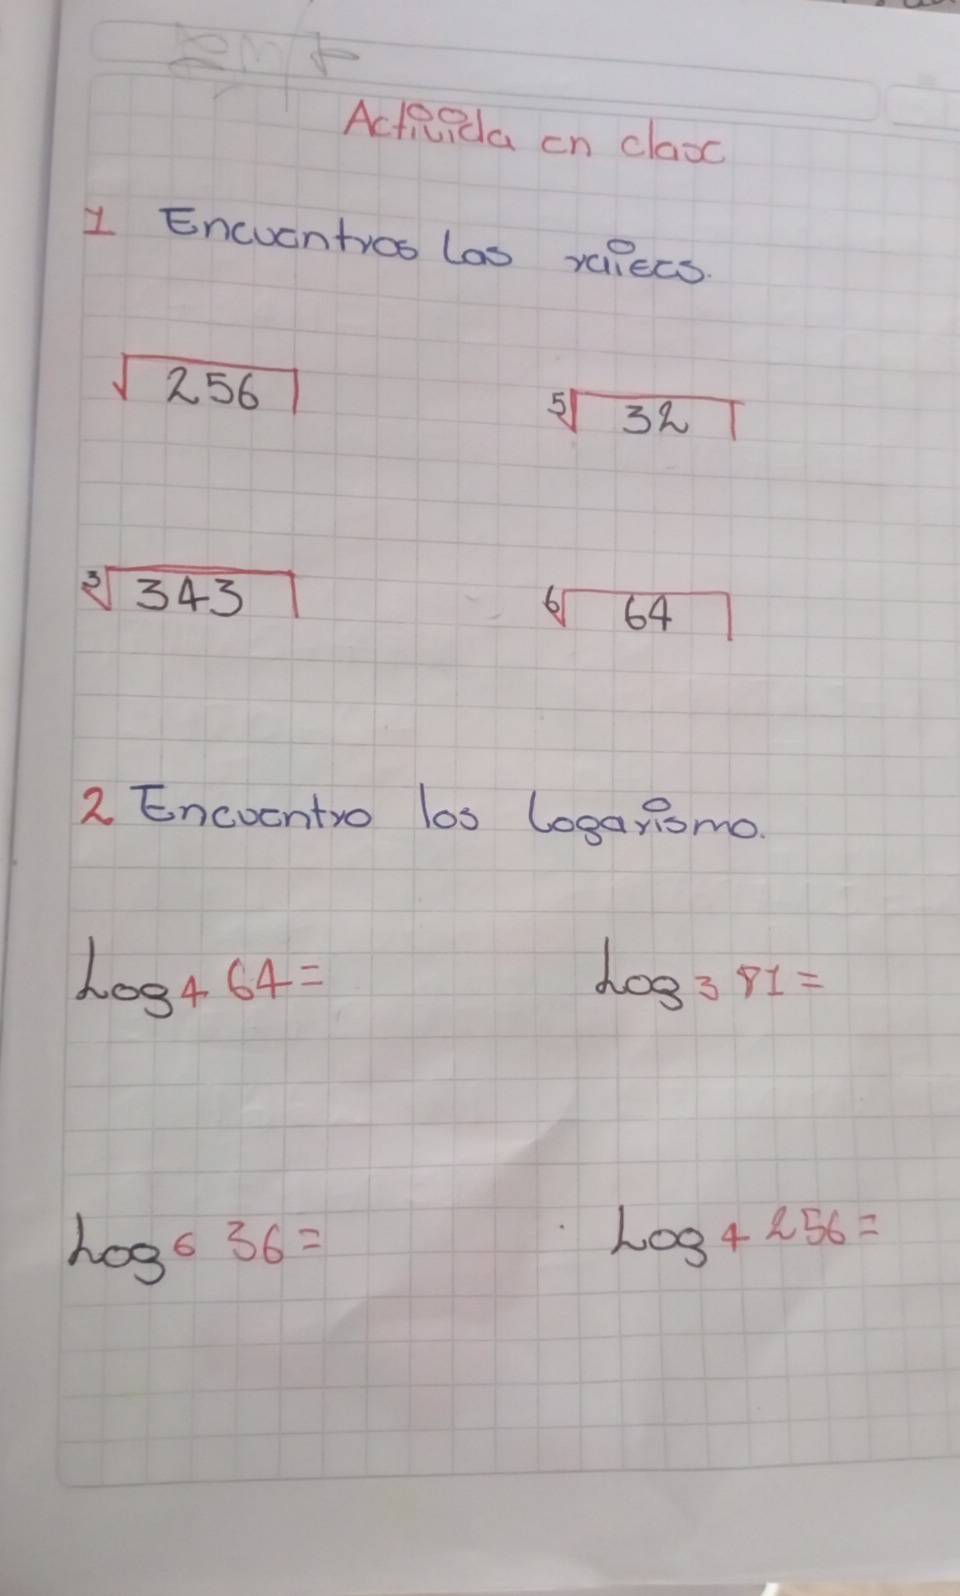 Activida en clase
1 Encuentros las raices.
√256
⁵√32
³√343
⁶√64
2 Encuentro los Logarismo.
Log₄ 64=
Log₃ 81=
Log₆ 36=
Log₄ 256=